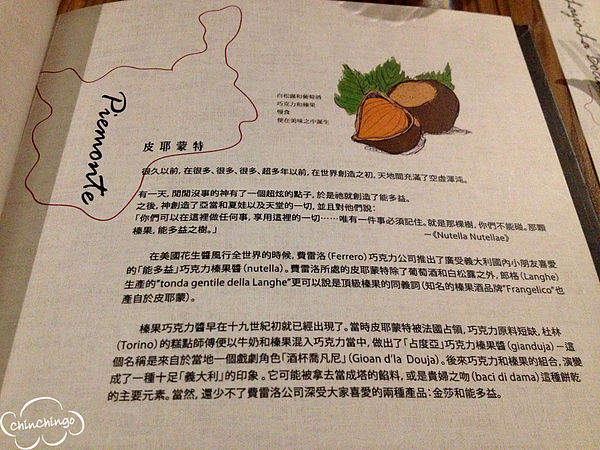 Piemonte
白松露和葡萄酒
巧克力和榛果
慢食
便在美味之中誕生
皮耶蒙特
很久以前，在很多、很多、很多、超多年以前，在世界創造之初，天地間充滿了空虛渾沌。
有一天，閒閒沒事的神有了一個超炫的點子，於是祂就創造了能多益。
之後，神創造了亞當和夏娃以及天堂的一切，並且對他們說：
「你們可以在這裡做任何事，享用這裡的一切……唯有一件事必須記住。就是那棵樹，你們不能碰。那顆
榛果，能多益之樹。」
—《Nutella Nutellae》
在美國花生醬風行全世界的時候，費雷洛（Ferrero）巧克力公司推出了廣受義大利國內小朋友喜愛
的「能多益」巧克力榛果醬（nutella）。費雷洛所處的皮耶蒙特除了葡萄酒和白松露之外，郎格（Langhe）
生產的"tonda gentile della Langhe"更可以說是頂級榛果的同義詞（知名的榛果酒品牌"Frangelico"也
產自於皮耶蒙）。
榛果巧克力醬早在十九世紀初就已經出現了。當時皮耶蒙特被法國占領，巧克力原料短缺，杜林
（Torino）的糕點師傅便以牛奶和榛果混入巧克力當中，做出了「占度亞」巧克力榛果醬（gianduja）—這
個名稱是來自於當地一個戲劇角色「酒杯喬凡尼」（Gioan d'la Douja）。後來巧克力和榛果的組合，演變
成了一種十足「義大利」的印象。它可能被拿去當成塔的餡料，或是貴婦之吻（baci di dama）這種餅乾
的主要元素。當然，還少不了費雷洛公司深受大家喜愛的兩種產品：金莎和能多益。
chinchingo